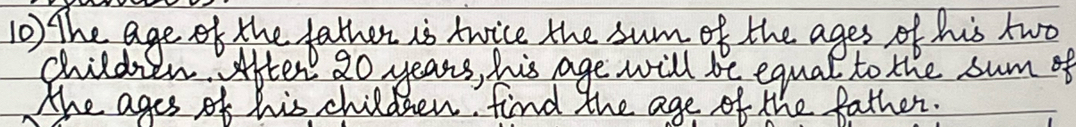 10) The age of the father is twice the sum of the ages of his two
children. After 20 years, his age will be equal to the sum of
the ages of his children. find the age of the father.